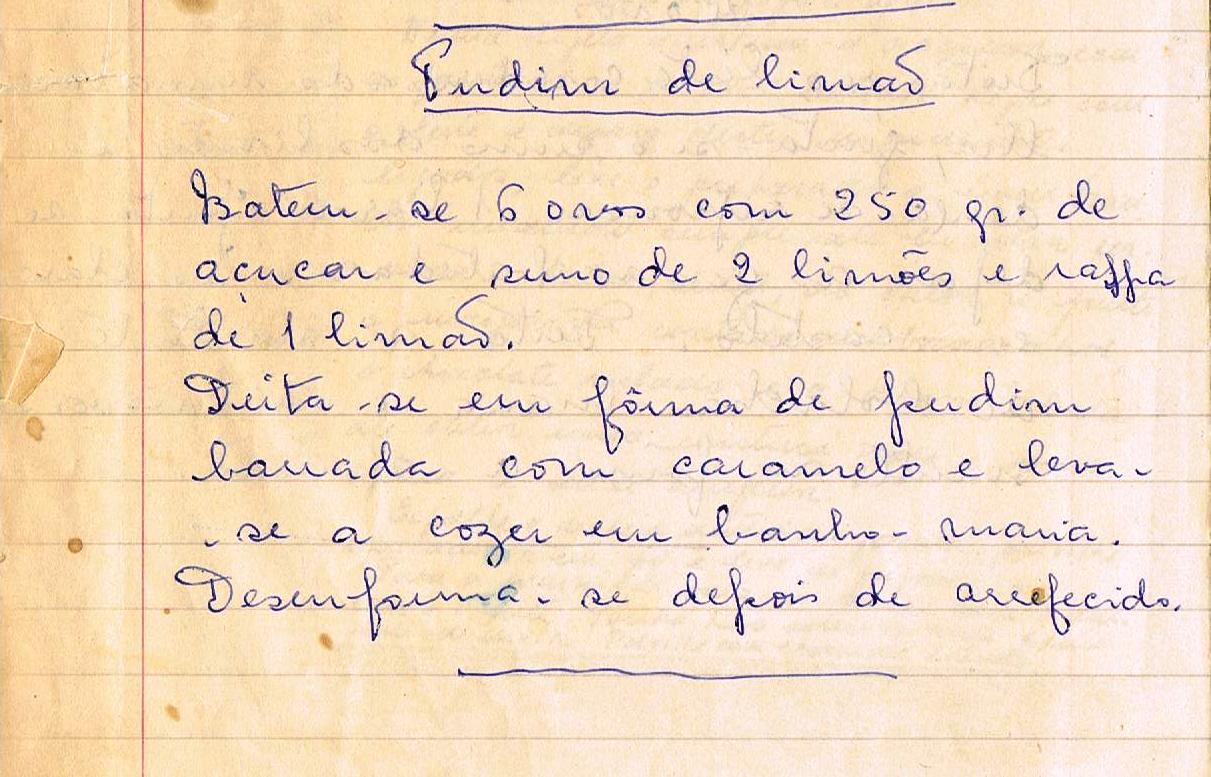 Pudim de limão
Batem-se 6 ovos com 250 gr. de
açucar e sumo de 2 limões e raspa
de 1 limão.
Deita-se em fôrma de pudim
barrada com caramelo e leva-
-se a cozer em banho-maria.
Desenforma-se depois de arrefecido.